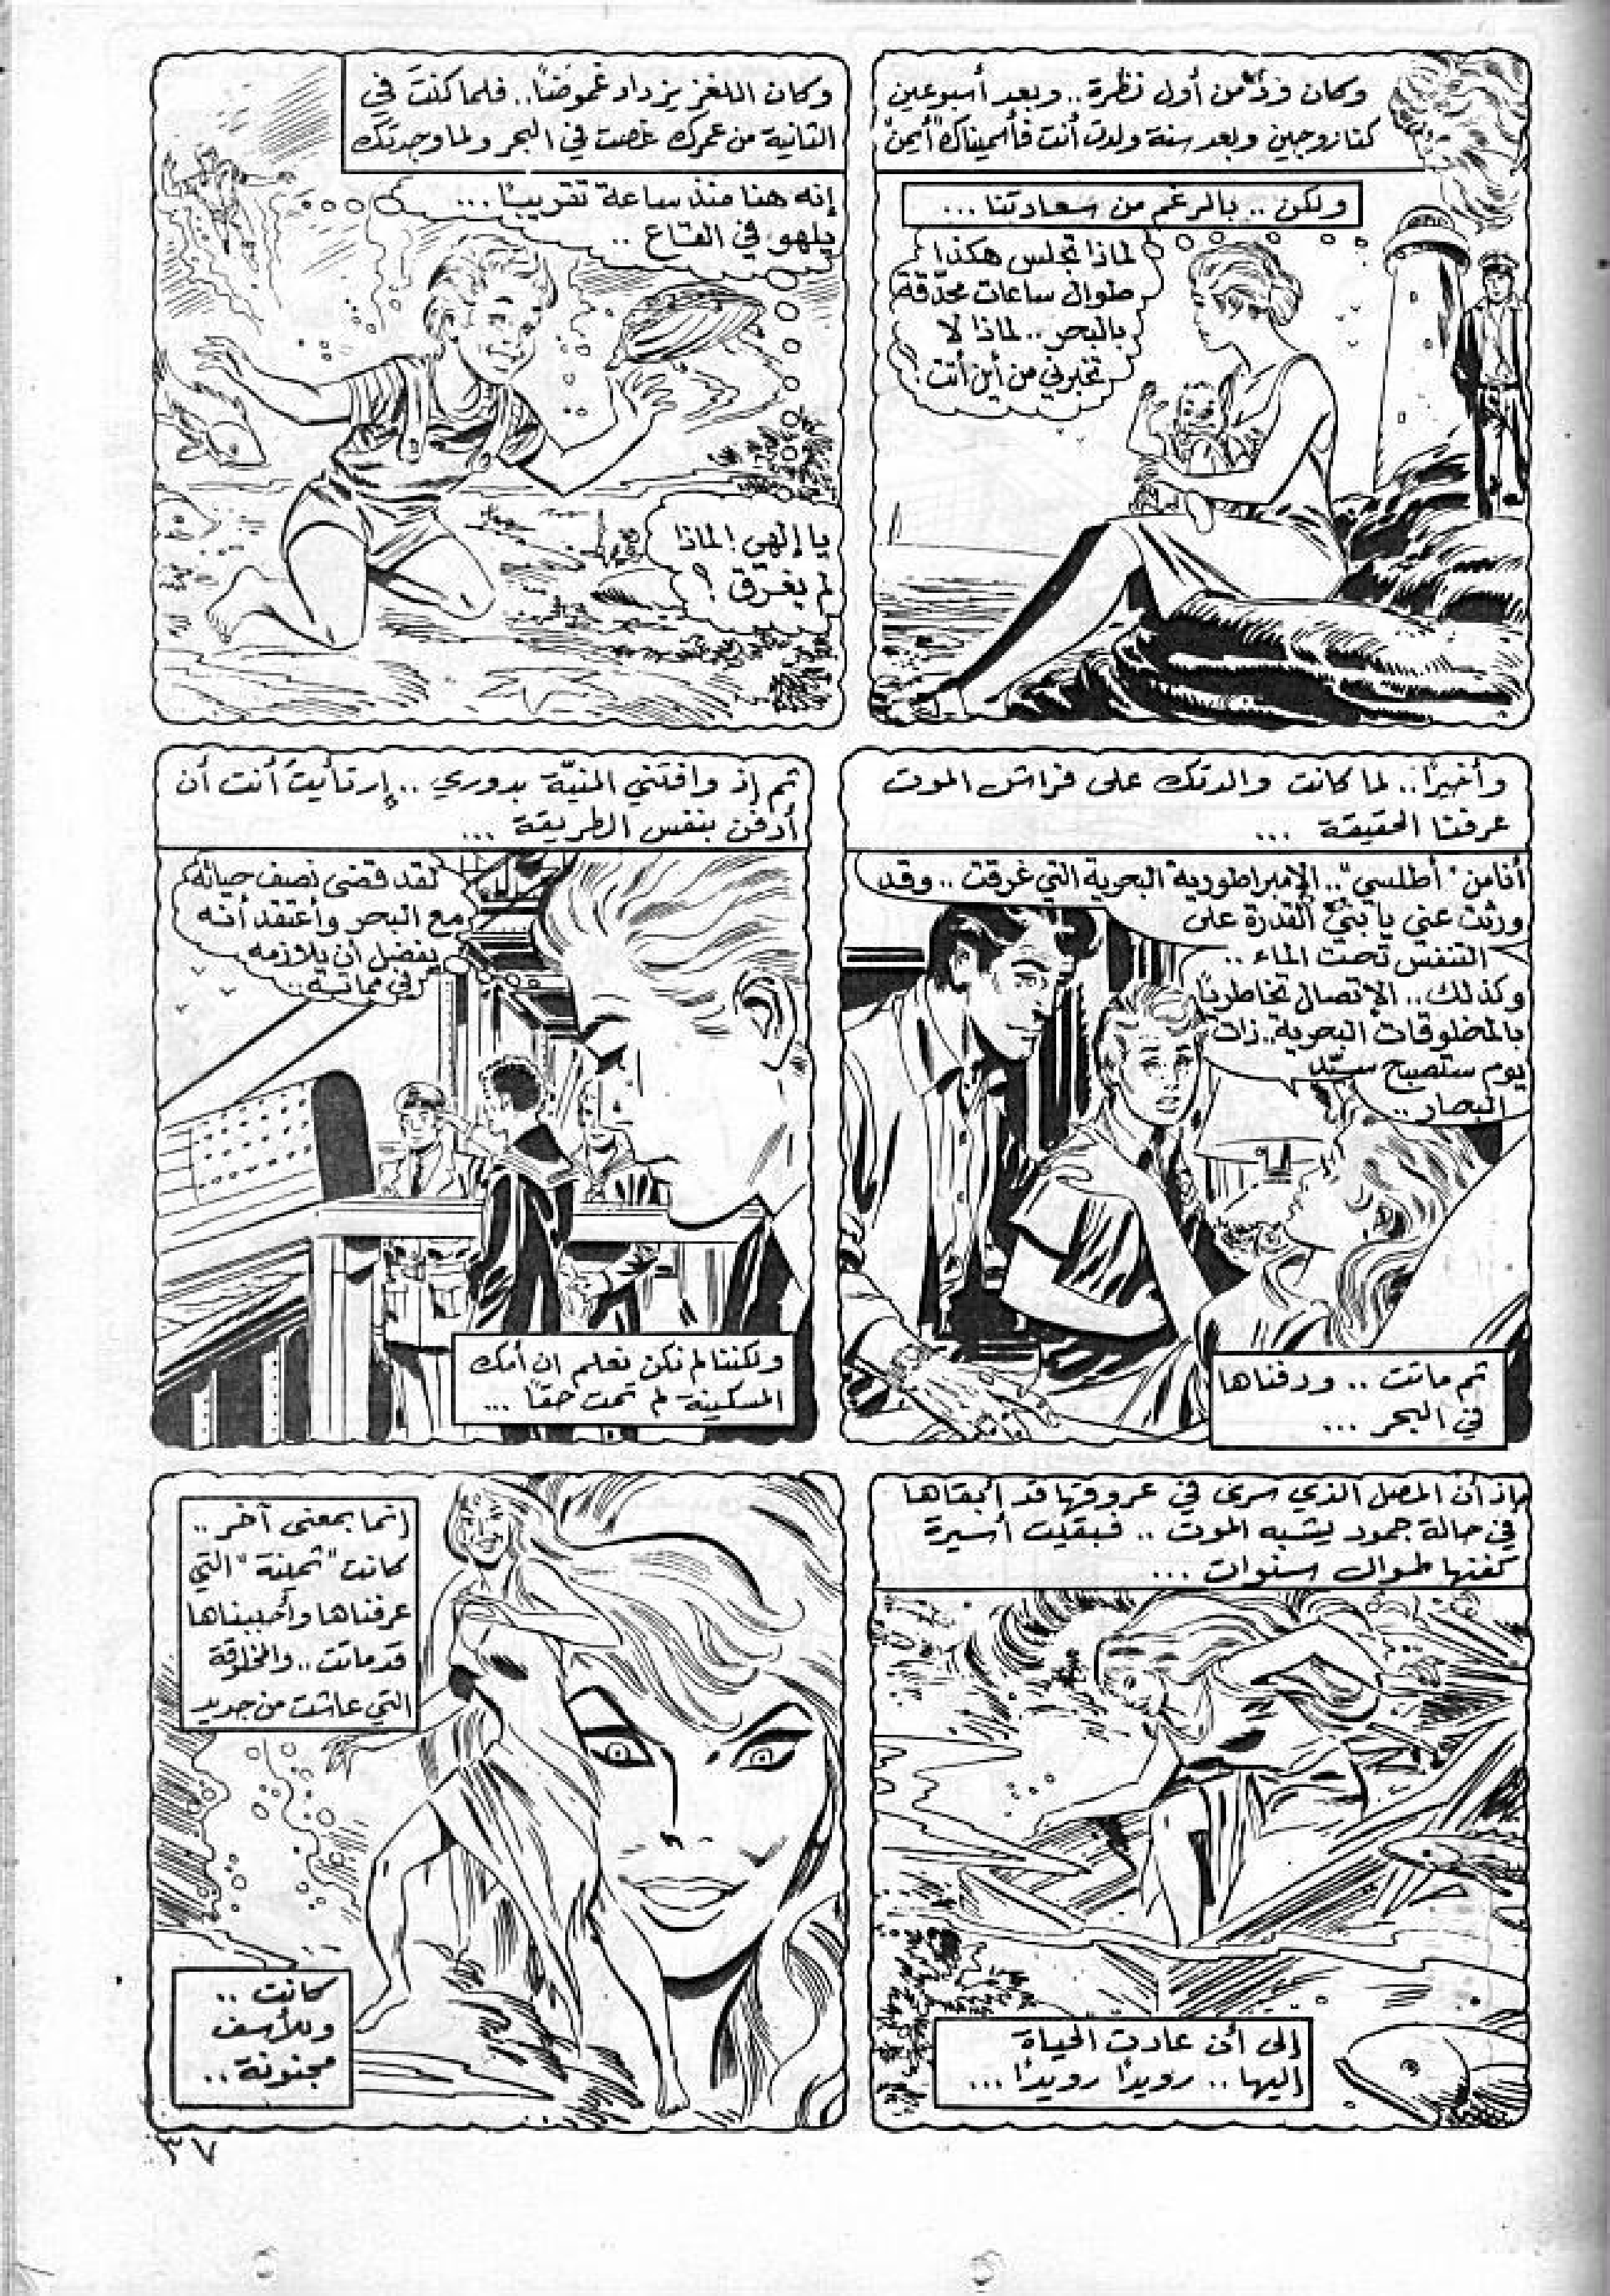 وكان ودّ من أول نظرة.. وبعد أسبوعين
كنا زوجين وبعد سنة ولدت أنت فأسميناك "أيمن"
ولكن.. بالرغم من سعادتنا...
لماذا تجلس هكذا
طوال ساعات محدّقة
بالبحر.. لماذا لا
تخبرني من أين أتت؟
وكان اللغز يزداد غموضًا.. فلما كنتَ في
الثانية من عمرك غصت في البحر ولما وجدتك
إنه هنا منذ ساعة تقريبًا...
يلهو في القاع..
يا إلهي! لماذا
لم يغرق؟
وأخيرًا.. لما كانت والدتك على فراش الموت
عرفنا الحقيقة...
أنا من "أطلسي".. الإمبراطورية البحرية التي غرقت.. وقد
ورثت عني يا بنيّ القدرة على
التنفس تحت الماء..
وكذلك.. الإتصال تخاطريًا
بالمخلوقات البحرية.. ذات
يوم ستصبح سيّد
البحار..
ثم ماتت.. ودفناها
في البحر...
ثم إذ وافتني المنيّة بدوري.. إرتأيتَ أنت أن
أدفن بنفس الطريقة...
لقد قضى نصف حياته
مع البحر وأعتقد أنه
يفضل أن يلازمه
في مماته..
ولكننا لم نكن نعلم ان أمك
المسكينة لم تمت حقًا...
إذ أن المصل الذي سرى في عروقها قد أبقاها
في حالة جمود يشبه الموت.. فبقيت أسيرة
كفنها طوال سنوات...
إلى أن عادت الحياة
إليها.. رويدًا رويدًا...
إنما بمعنى آخر..
كانت التي
عرفناها وأحببناها
قد ماتت.. والمخلوقة
التي عاشت من جديد
كانت..
وللأسف
مجنونة..
٣٧